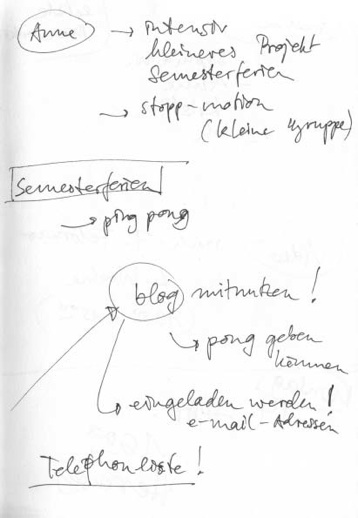 Anne → intensiv
kleineres Projekt
Semesterferien
→ stopp-motion
(kleine Gruppe)
Semesterferien
→ ping pong
blog mitnutzen!
↳ pong geben
können
↳ eingeladen werden!
e-mail-Adressen
Telephonliste!